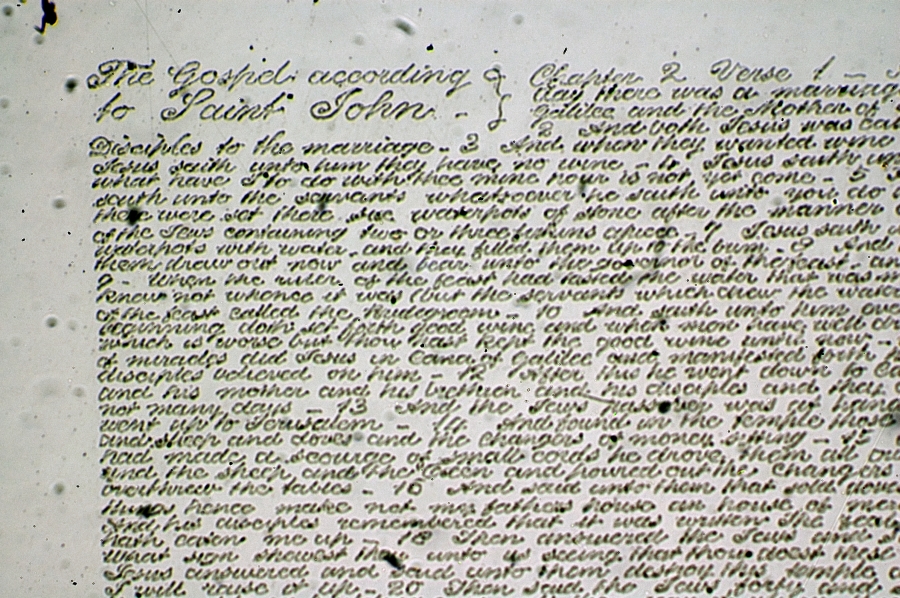 The Gospel according to Saint John. -
Chapter 2 Verse 1 -
day there was a marriage
Galilee and the Mother of
2 And both Jesus was cal
Disciples to the marriage - 3 And when they wanted wine
Jesus saith unto him they have no wine - 4 Jesus saith un
what have I to do with thee mine hour is not yet come - 5
saith unto the servants whatsoever he saith unto you do
there were set there six waterpots of stone after the manner
of the Jews containing two or three firkins apiece - 7 Jesus saith u
waterpots with water - and they filled them up to the brim - 8 And
them draw out now and bear unto the governor of the feast - an
9 - When the ruler of the feast had tasted the water that was m
knew not whence it was (but the servants which drew the wate
of the feast called the bridegroom - 10 And saith unto him eve
beginning doth set forth good wine and when men have well dr
which is worse but thou hast kept the good wine until now -
of miracles did Jesus in Cana of Galilee and manifested forth h
disciples believed on him - 12 After this he went down to Ca
and his mother and his brethren and his disciples and they
not many days - 13 And the Jews passover was at han
went up to Jerusalem - 14 And found in the temple those
and sheep and doves and the changers of money sitting - 15
had made a scourge of small cords he drove them all ou
and the sheep and the Oxen and poured out the changers
overthrew the tables - 16 And said unto them that sold dove
things hence make not my fathers house an house of mer
And his disciples remembered that it was written The zeal
hath eaten me up - 18 Then answered the Jews and s
What sign shewest thou unto us seeing that thou doest these
Jesus answered and said unto them destroy this temple a
I will raise it up - 20 Then said the Jews forty and